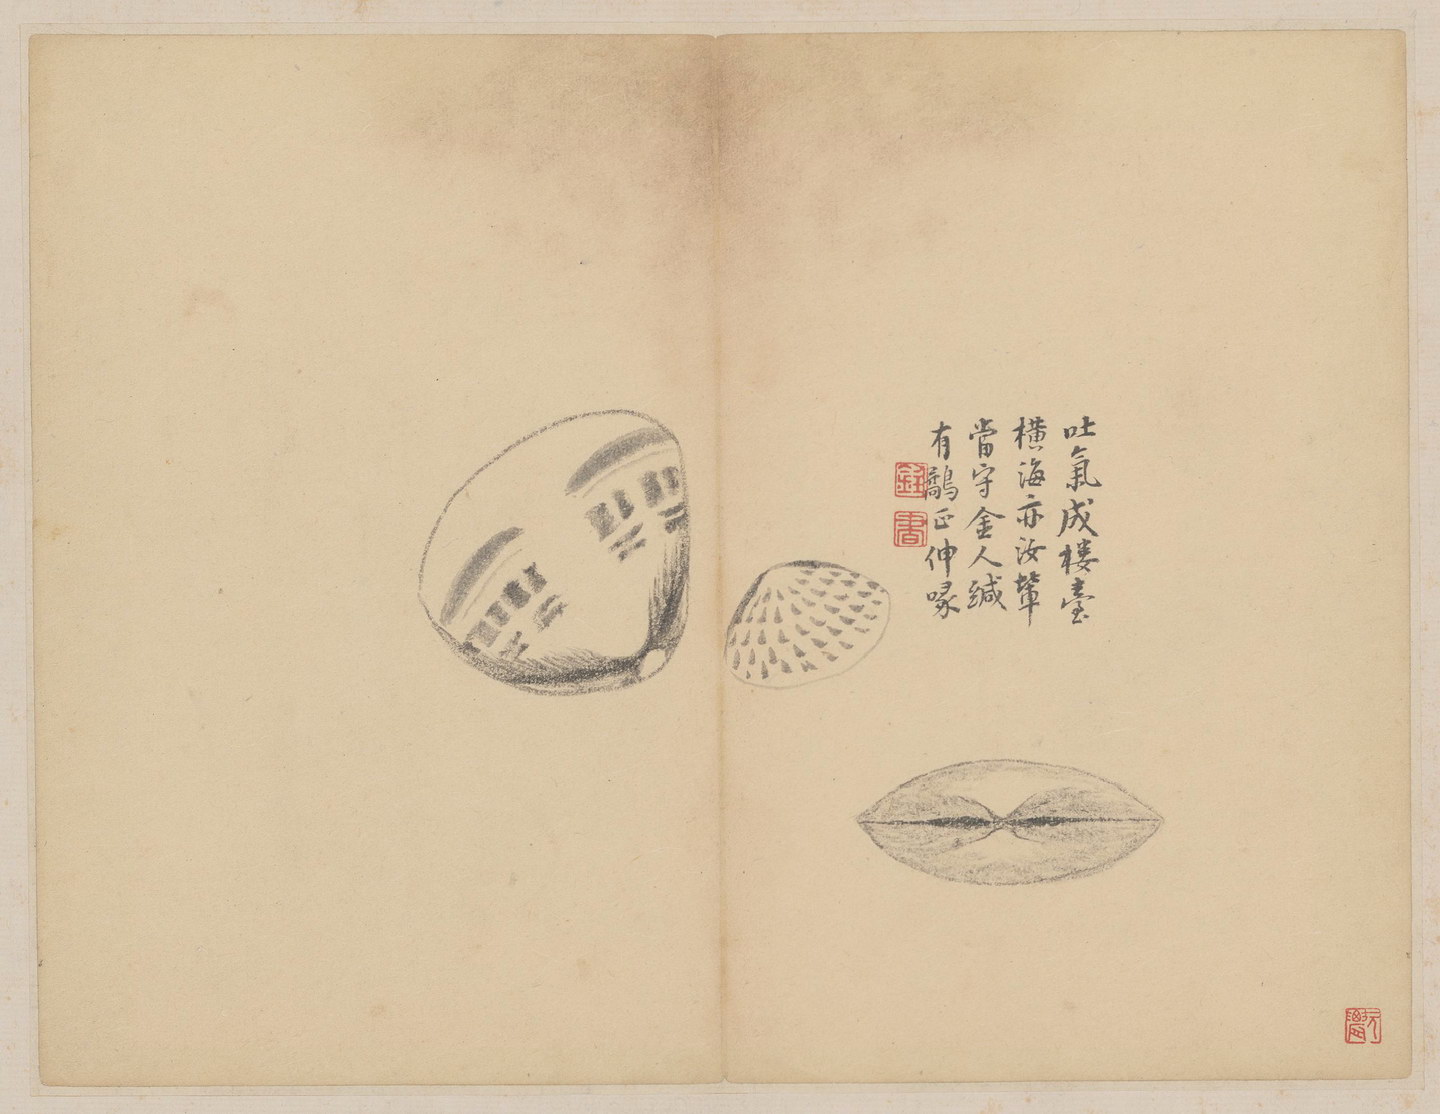 吐氣成樓臺
橫海亦汝輩
當守金人緘
有鷸正伸喙